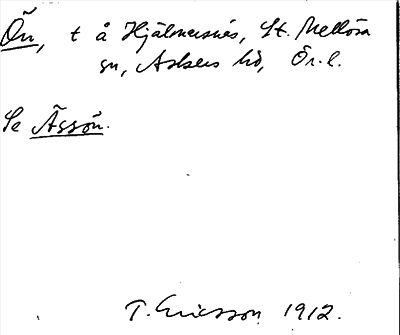 Ön, t å Hjälmarsnäs, St. Mellösa
sn, Askers hd, Ör. l.
Se Ässön.
T. Ericsson 1912.